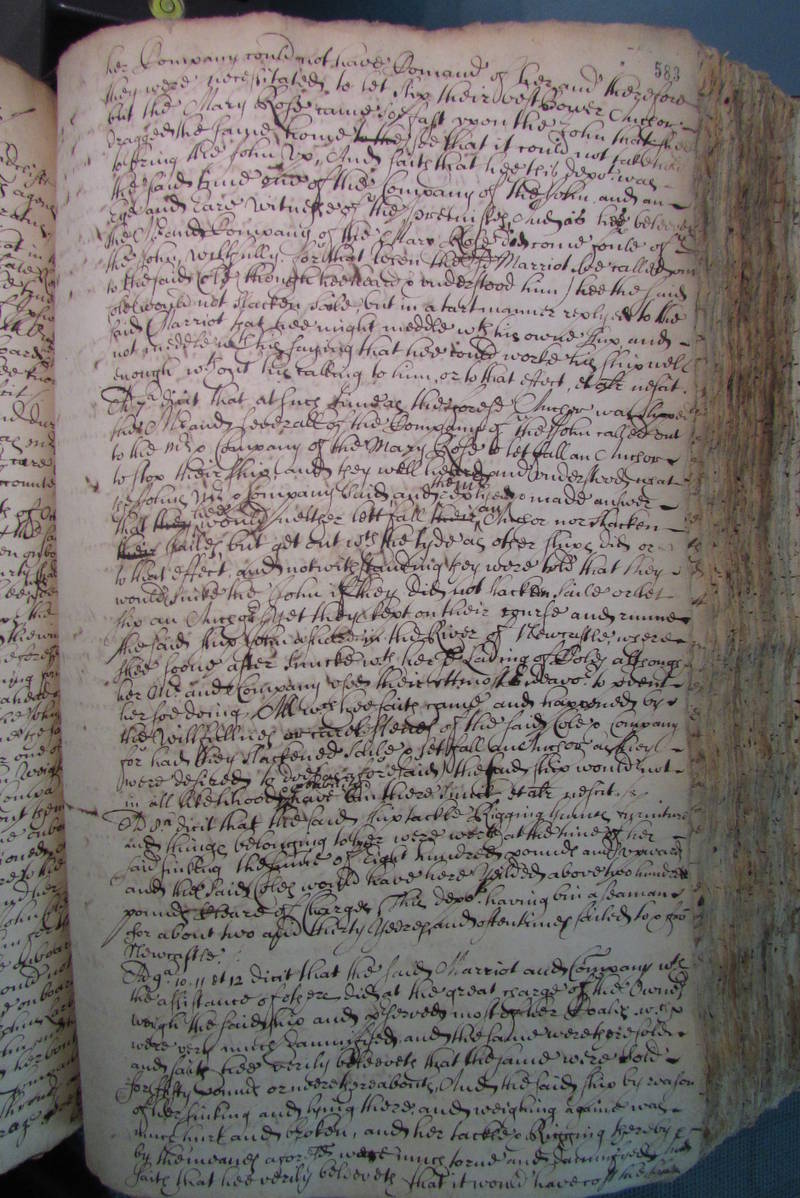 583
her Company could not have Comand of her and therefore
they were necessitated to let slip their best Bower Anchor
but the Mary Rose came so fast upon the John that shee
dragged the same home soe that it could not
bring the John up, And saith that hee this depot was
the said tyme one of the Company of the John, and an
Eye and eare witnesse of the premisses, And as hee beleeveth
the Mr and Company of the Mary Rose did come foule of
the John willfully for that when the sd Marriot soe called out
to the said Cole though hee heard & understood him) hee the said
Cole would not slacken saile, but in a tart manner replyed to the
said Marriot that hee might meddle wth his owne ship, and
not meddle wth his saying that hee could worke his ship well
enough wthout his talking to him, or to that effect, et aliter nescit.
Ad 7a dicit that at such time as the foresd Anchor was slipped
the Mr and severall of the Company of the John called out
to the Mr & Company of the Mary Rose to let fall an Anchor
to stop their ship, and they well heard and understood what
the Johns Mr & Company said and replyed & made answer
that they would neither lett fall their an Anchor nor slacken
their saile, but get out wth the tyde as other ships did or
to that effect, and notwithstanding they were told that they
would sinke the John if they did not slacken saile or let
slip an Anchor, yet they kept on their course and runne
the said ship John in the River of Newcastle, where
shee soone after suncke wth her Lading of Coles although
her Mr and Company used their uttmost Endeavor to prevent
her soe doeing, All wch hee saith came and happened by
the willfullnes or carelesnes of the said Cole & Company
for had they slackened saile & let fall an Anchor as they
were desired to doe (as aforesaid) the said ship would not
in all likelihood have bin there sunck et aliter nescit.
Ad 8a dicit that the said ship tackle Rigging furniture
and things belonging to her were worth at the time of her
said sinking the summe of eight hundred pounds and upwards
and the said Coles would have here yeilded above two hundred
pounds cleare of charges, This depot having bin a seaman
for about two and thirty yeeres, and oftentimes sailed to & fro
Newcastle.
Ad 9a. 10. 11 et 12 dicit that the said Marriot and Company wth
the assistance of others did at the great charge of the Owners
weigh the said ship and preserved most of her Coales wch
were very much damnified, and the same were there sold
and saith hee verily beleeveth that the same were sold
for fifty pounds or neere thereabouts, And the said ship by reason
of her sinking and lying there, and weighing againe was
much hurt and broken, and her tackle & Rigging thereby &
by the meanes aforesd were much torne and damnified, And
saith that hee verily beleeveth that it would have cost the